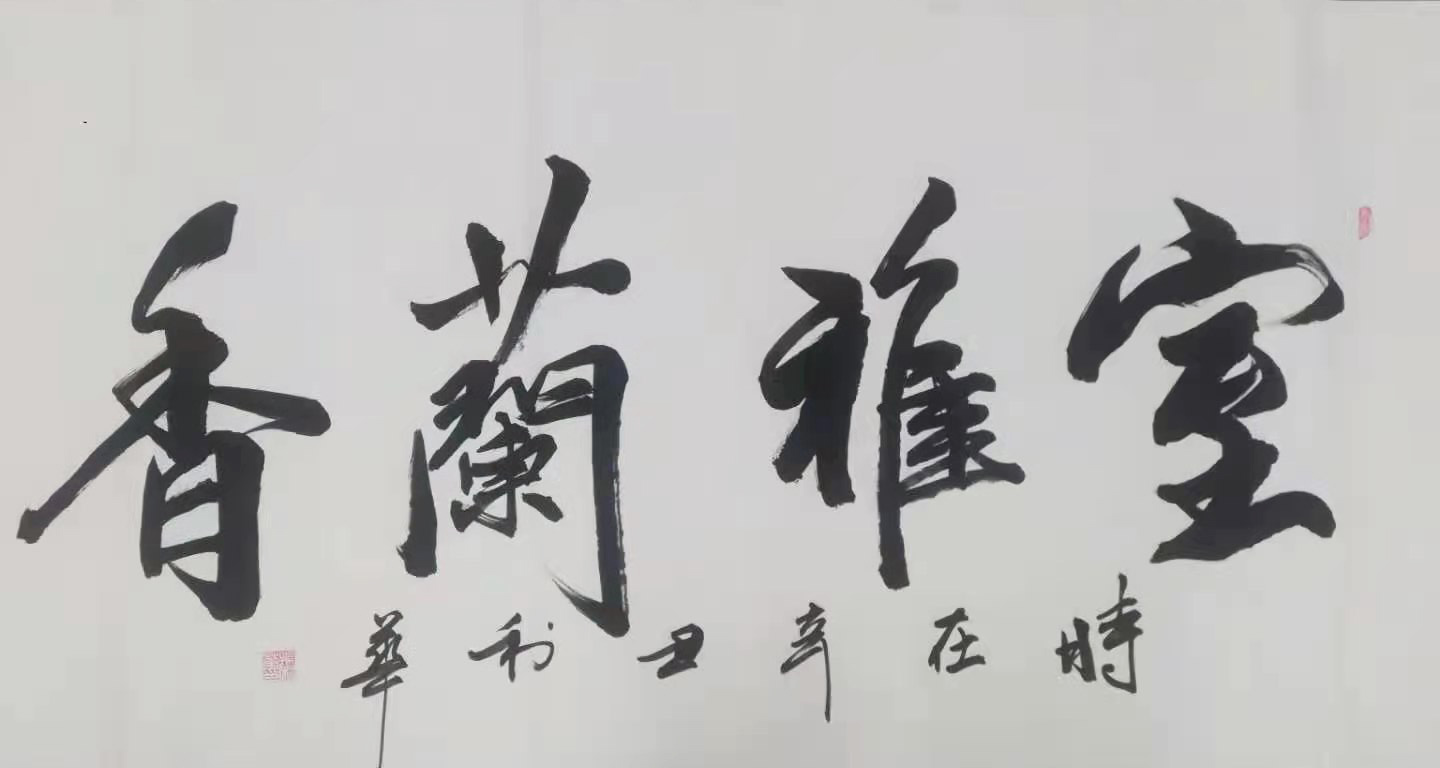 室雅蘭香
時在辛丑利華